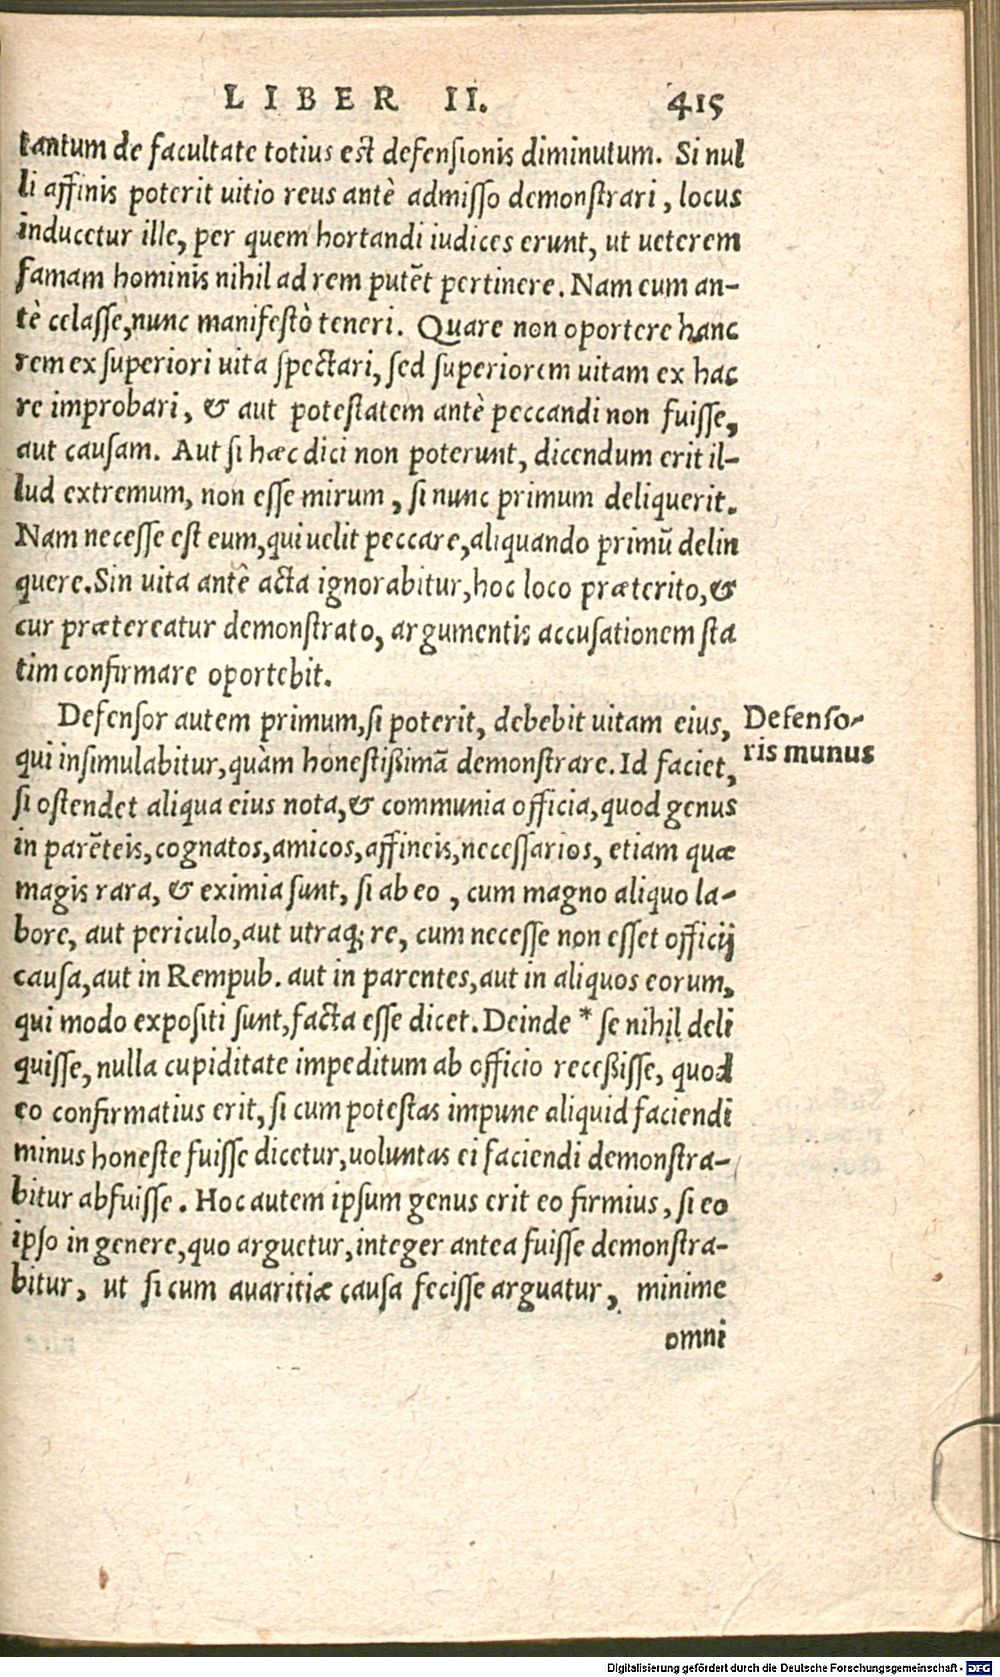 LIBER II. 415
tantum de facultate totius est defensionis diminutum. Si nul
li affinis poterit uitio reus antè admisso demonstrari, locus
inducetur ille, per quem hortandi iudices erunt, ut ueterem
famam hominis nihil ad rem putēt pertinere. Nam eum an-
tè celasse, nunc manifestò teneri. Quare non oportere hanc
rem ex superiori uita spectari, sed superiorem uitam ex hac
re improbari, & aut potestatem antè peccandi non fuisse,
aut causam. Aut si hæc dici non poterunt, dicendum erit il-
lud extremum, non esse mirum, si nunc primum deliquerit.
Nam necesse est eum, qui uelit peccare, aliquando primū delin
quere. Sin uita antê acta ignorabitur, hoc loco præterito, &
cur prætereatur demonstrato, argumentis accusationem sta
tim confirmare oportebit.
Defensor autem primum, si poterit, debebit uitam eius,
Defenso-
ris munus
qui insimulabitur, quàm honestißimā demonstrare. Id faciet,
si ostendet aliqua eius nota, & communia officia, quod genus
in parēteis, cognatos, amicos, affineis, necessarios, etiam quæ
magis rara, & eximia sunt, si ab eo, cum magno aliquo la-
bore, aut periculo, aut utraq; re, cum necesse non esset officij
causa, aut in Rempub. aut in parentes, aut in aliquos eorum,
qui modo expositi sunt, facta esse dicet. Deinde * se nihil deli
quisse, nulla cupiditate impeditum ab officio receßisse, quod
eo confirmatius erit, si cum potestas impune aliquid faciendi
minus honeste fuisse dicetur, uoluntas ei faciendi demonstra-
bitur abfuisse. Hoc autem ipsum genus erit eo firmius, si eo
ipso in genere, quo arguetur, integer antea fuisse demonstra-
bitur, ut si cum auaritiæ causa fecisse arguatur, minime
omni
Digitalisierung gefördert durch die Deutsche Forschungsgemeinschaft - DFG